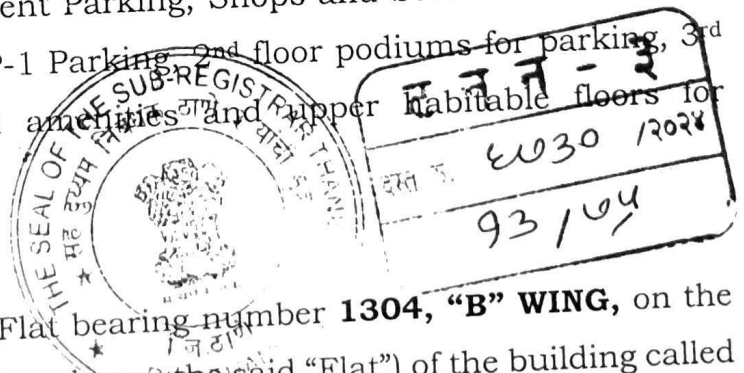 ent Parking, Shops and
-1 Parking, 2nd floor podiums for parking, 3rd
amenities and upper habitable floors for
THE SEAL OF THE SUB-REGISTRAR THANE
ट न न - ३
दस्त क्र. ६७३० /२०२४
१३ / ७५
Flat bearing number 1304, “B” WING, on the
said “Flat”) of the building called